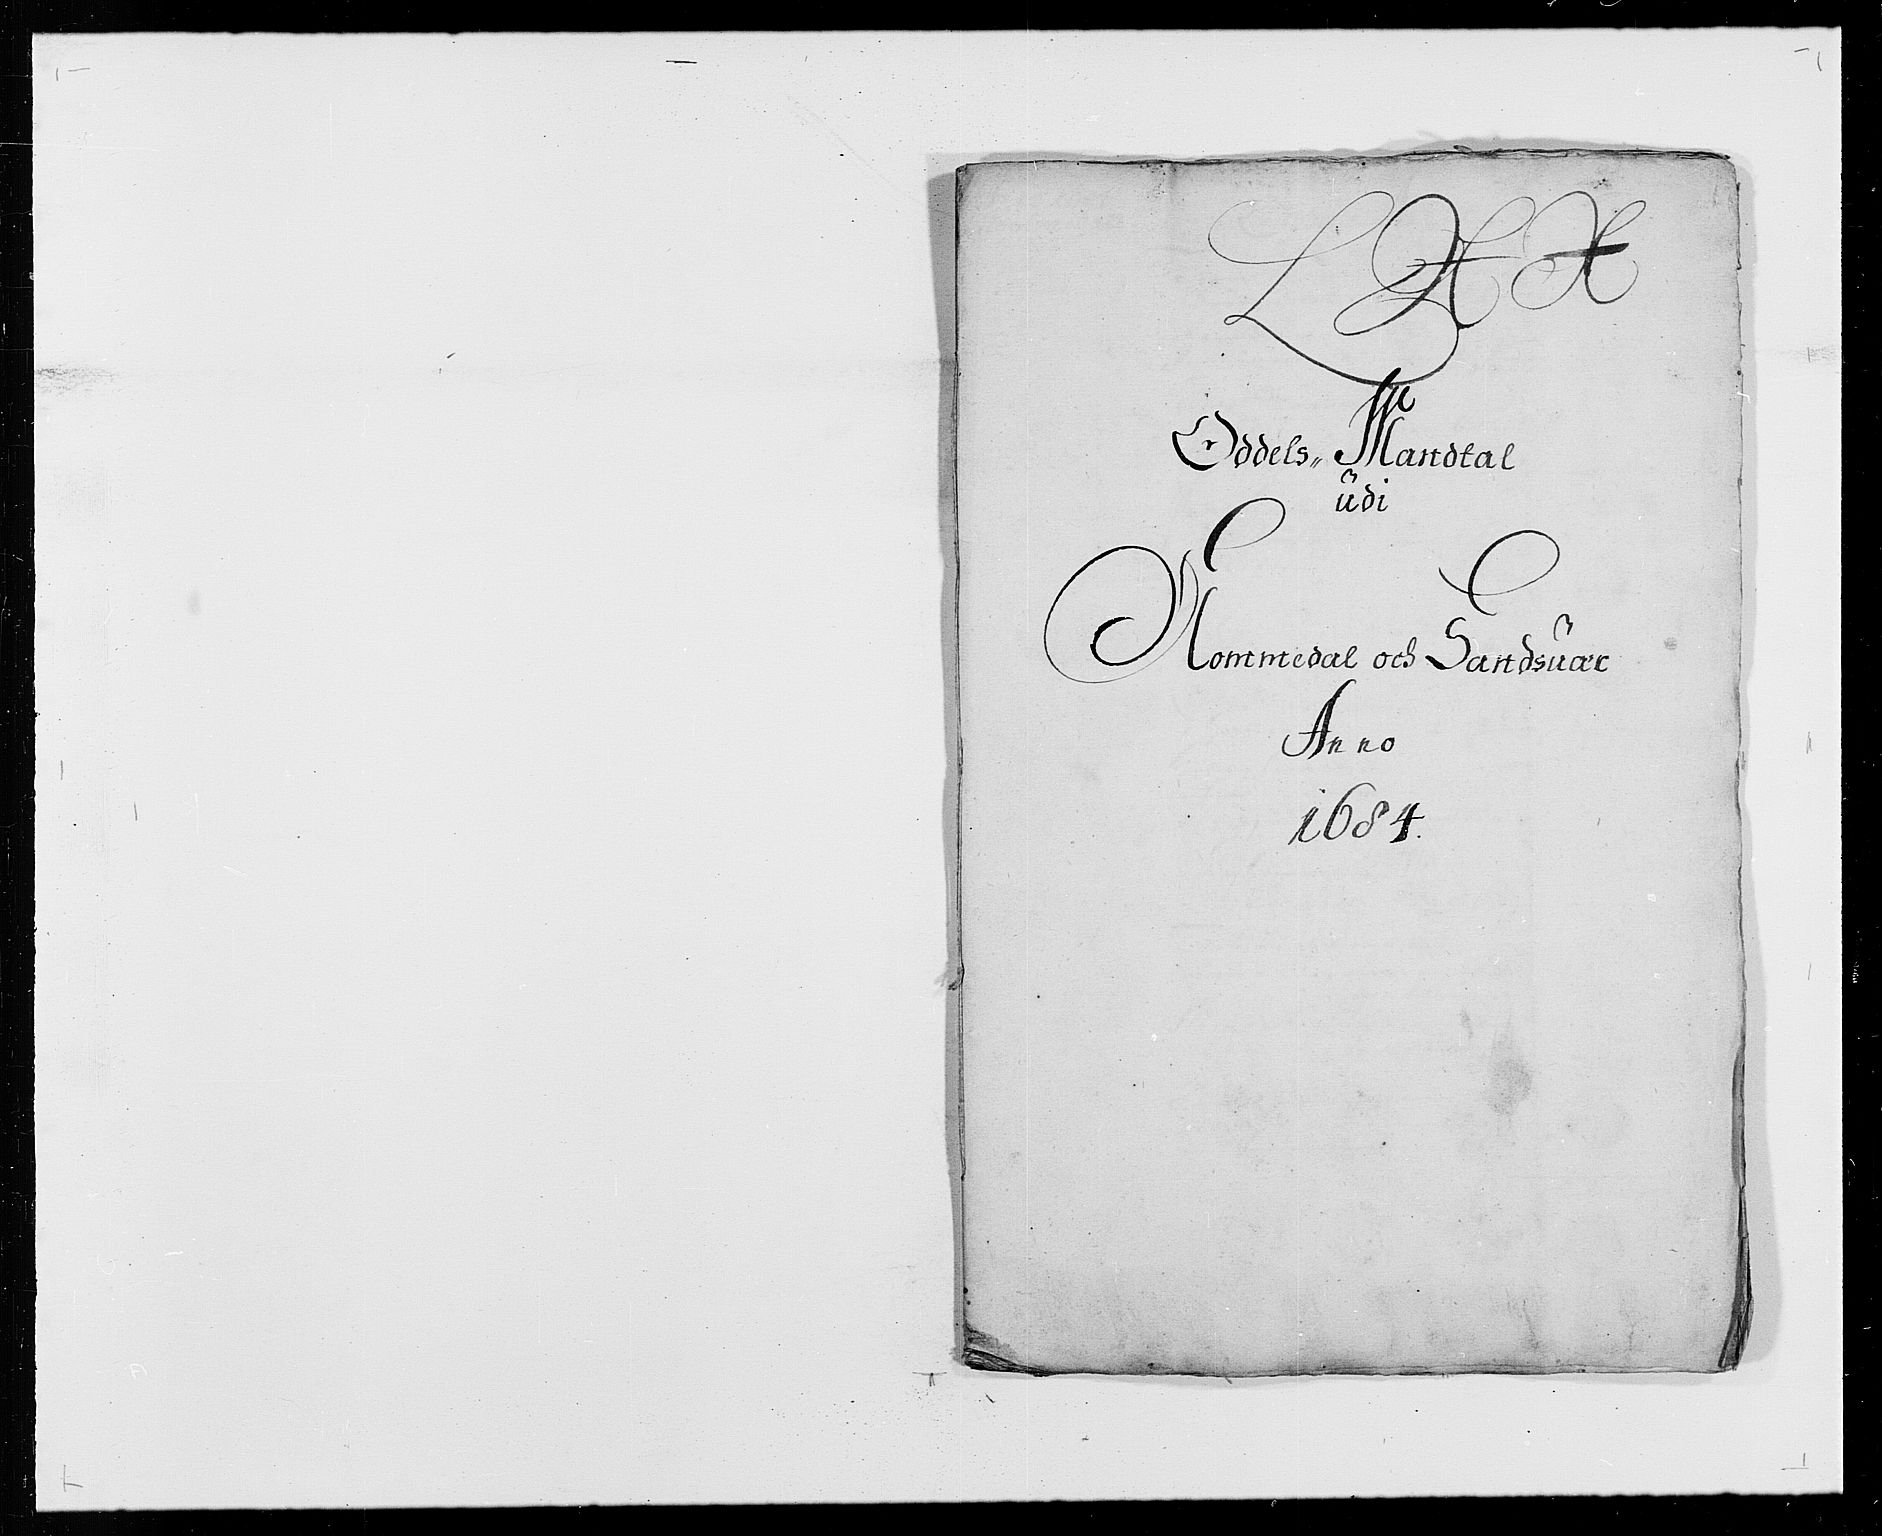 L XX
Oddels„ Mandtal
ŭdi
Nommedal och Sandsŭær
Anno
1684.